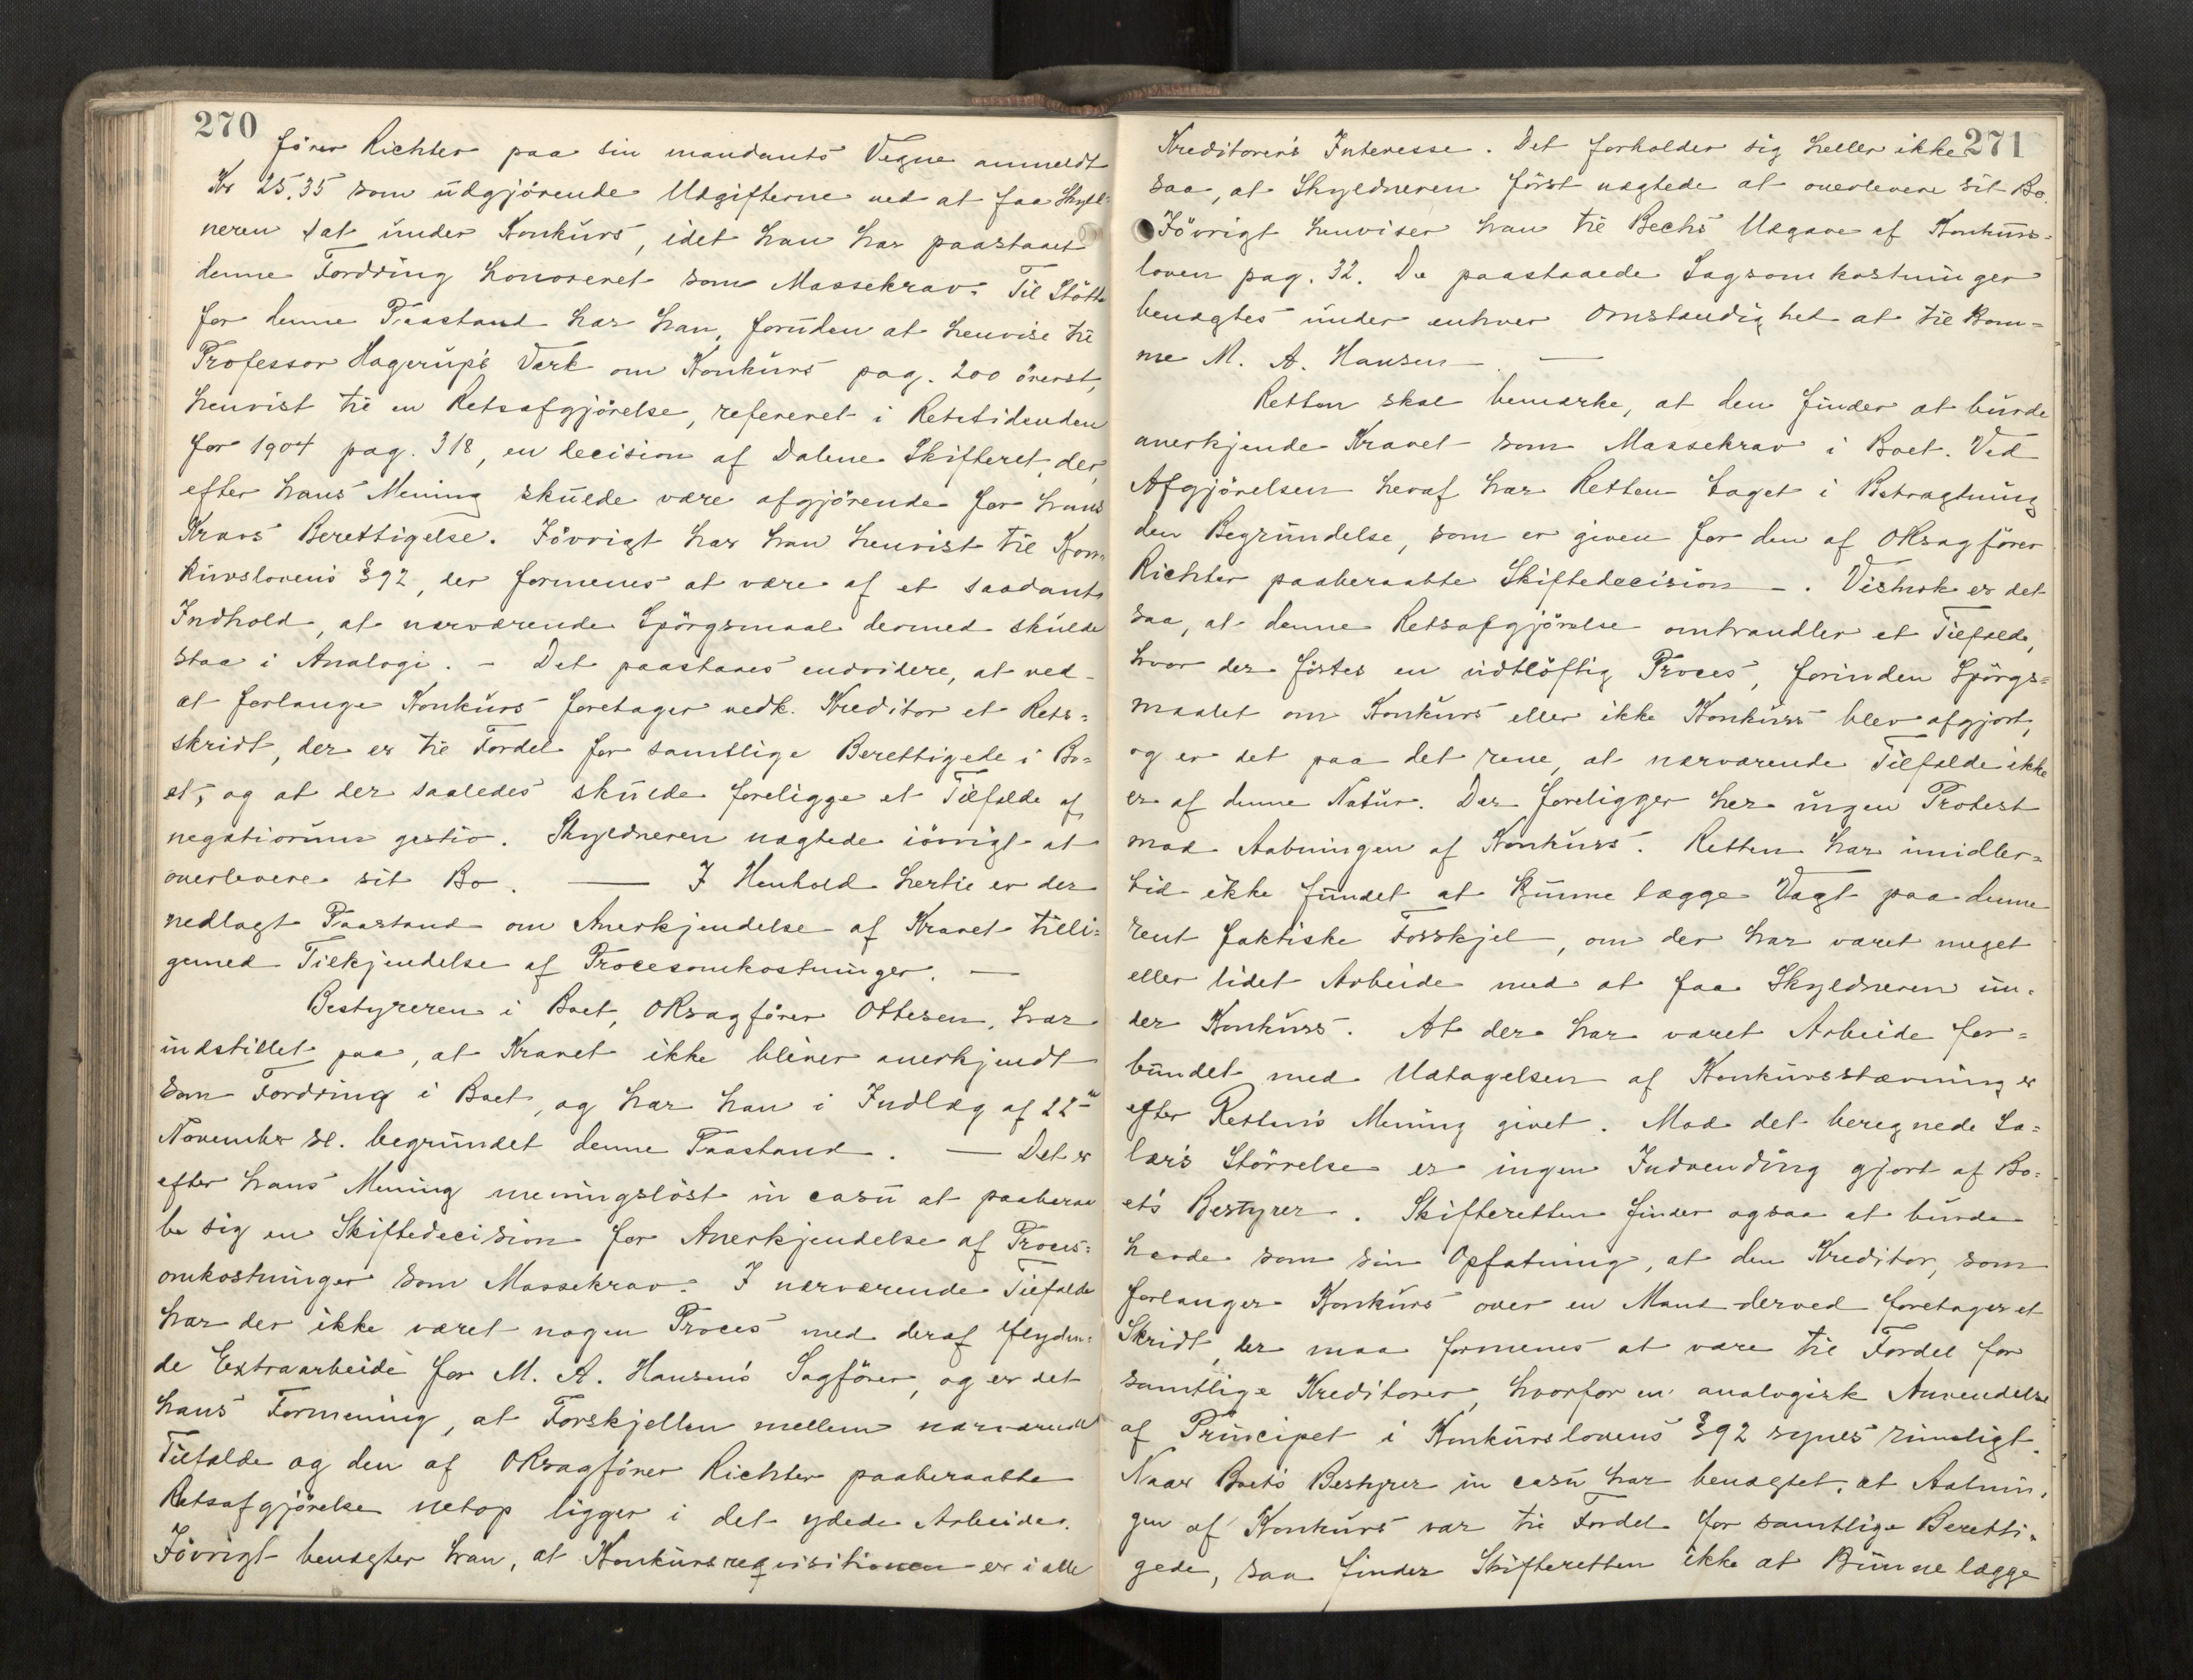 270
fører Richter paa sin mandants Vegne anmeldt
Kr 25.35 som udgjørende Udgifterne ved at faa Skyld-
neren sat under Konkurs, idet han har paastaaet
denne Fordring honoreret som Massekrav. Til Støtte
for denne Paastand har han, foruden at henvise til
Professor Hagerup's Værk om Konkurs pag. 200 øverst,
henvist til en Retsafgjørelse, refereret i Retstidenden
for 1904 pag. 318, en decision af Dalene Skifteret, der,
efter hans Mening skulde være afgjørende for hans
Kravs Berettigelse. Iøvrigt har han henvist til Kon-
kurslovens §92, der formenes at være af et saadant
Indhold, at nærværende Spørgsmaal dermed skulde
staa i Analogi. - Det paastaaes endvidere, at ved
at forlange Konkurs foretager vedk. Kreditor et Rets-
skridt, der er til Fordel for samtlige Berettigede i Bo-
et, og at der saaledes skulde foreligge et Tilfælde af
negotiorum gestio. Skyldneren nægtede iøvrigt at
overlevere sit Bo. — I Henhold hertil er der
nedlagt Paastand om Anerkjendelse af Kravet tilli-
gemed Tilkjendelse af Procesomkostninger. —
Bestyreren i Boet, ORsagfører Ottesen, har
indstillet paa, at Kravet ikke bliver anerkjendt
som Fordring i Boet, og har han i Indlæg af 22de
November sl. begrundet denne Paastand. — Det er
efter hans Mening meningsløst in casu at paaberaa
be sig en Skiftedecision for Anerkjendelse af Proces-
omkostninger som Massekrav. I nærværende Tilfælde
har der ikke været nogen Proces med deraf flyden-
de Extraarbeide for M. A. Hansen's Sagfører, og er det
hans Formening, at Forskjellen mellem nærværende
Tilfælde og den af ORsagfører Richter paaberaabte
Retsafgjørelse netop ligger i det ydede Arbeide.
Iøvrigt benægter han, at Konkursrequisitionen er i alle
271
Kreditorers Interesse. Det forholder sig heller ikke
saa, at Skyldneren først nægtede at overlevere sit Bo.
Iøvrigt henviser han til Bechs Udgave af Konkurs-
loven pag. 32. De paastaaede Sagsomkostninger
benægtes under enhver Omstændighet at tilkom-
me M. A. Hansen. —
Retten skal bemærke, at den finder at burde
anerkjende Kravet som Massekrav i Boet. Ved
Afgjørelsen heraf har Retten taget i Betragtning
den Begrundelse, som er given for den af ORsagfører
Richter paaberaabte Skiftedecision -. Vistnok er det
saa, at denne Retsafgjørelse omhandler et Tilfælde,
hvor der førtes en udtløftig Proces, forinden Spørgs-
maalet om Konkurs eller ikke Konkurs blev afgjort,
og er det paa det rene, at nærværende Tilfælde ikke
er af denne Natur. Der foreligger her ingen Protest
mod Aabningen af Konkurs. Retten har imidler-
tid ikke fundet at kunne lægge Vægt paa denne
rent faktiske Forskjel, om der har været meget
eller lidet Arbeide med at faa Skyldneren un-
der Konkurs. At der har været Arbeide for-
bundet med Udtagelsen af Konkursstævning er
efter Rettens Mening givet. Mod det beregnede Sa-
lær's Størrelse er ingen Indvending gjort af Bo-
ets Bestyrer. Skifteretten finder ogsaa at burde
hævde som sin Opfatning, at den Kreditor, som
forlanger Konkurs over en Mand derved foretager et
Skridt, der maa formenes at være til Fordel for
samtlige Kreditorer, hvorfor en analogisk Anvendelse
af Princippet i Konkurslovens §92 synes rimeligt.
Naar Boets Bestyrer in casu har benægtet, at Aabnin-
gen af Konkurs var til Fordel for samtlige Beretti-
gede, saa finder Skifteretten ikke at kunne lægge